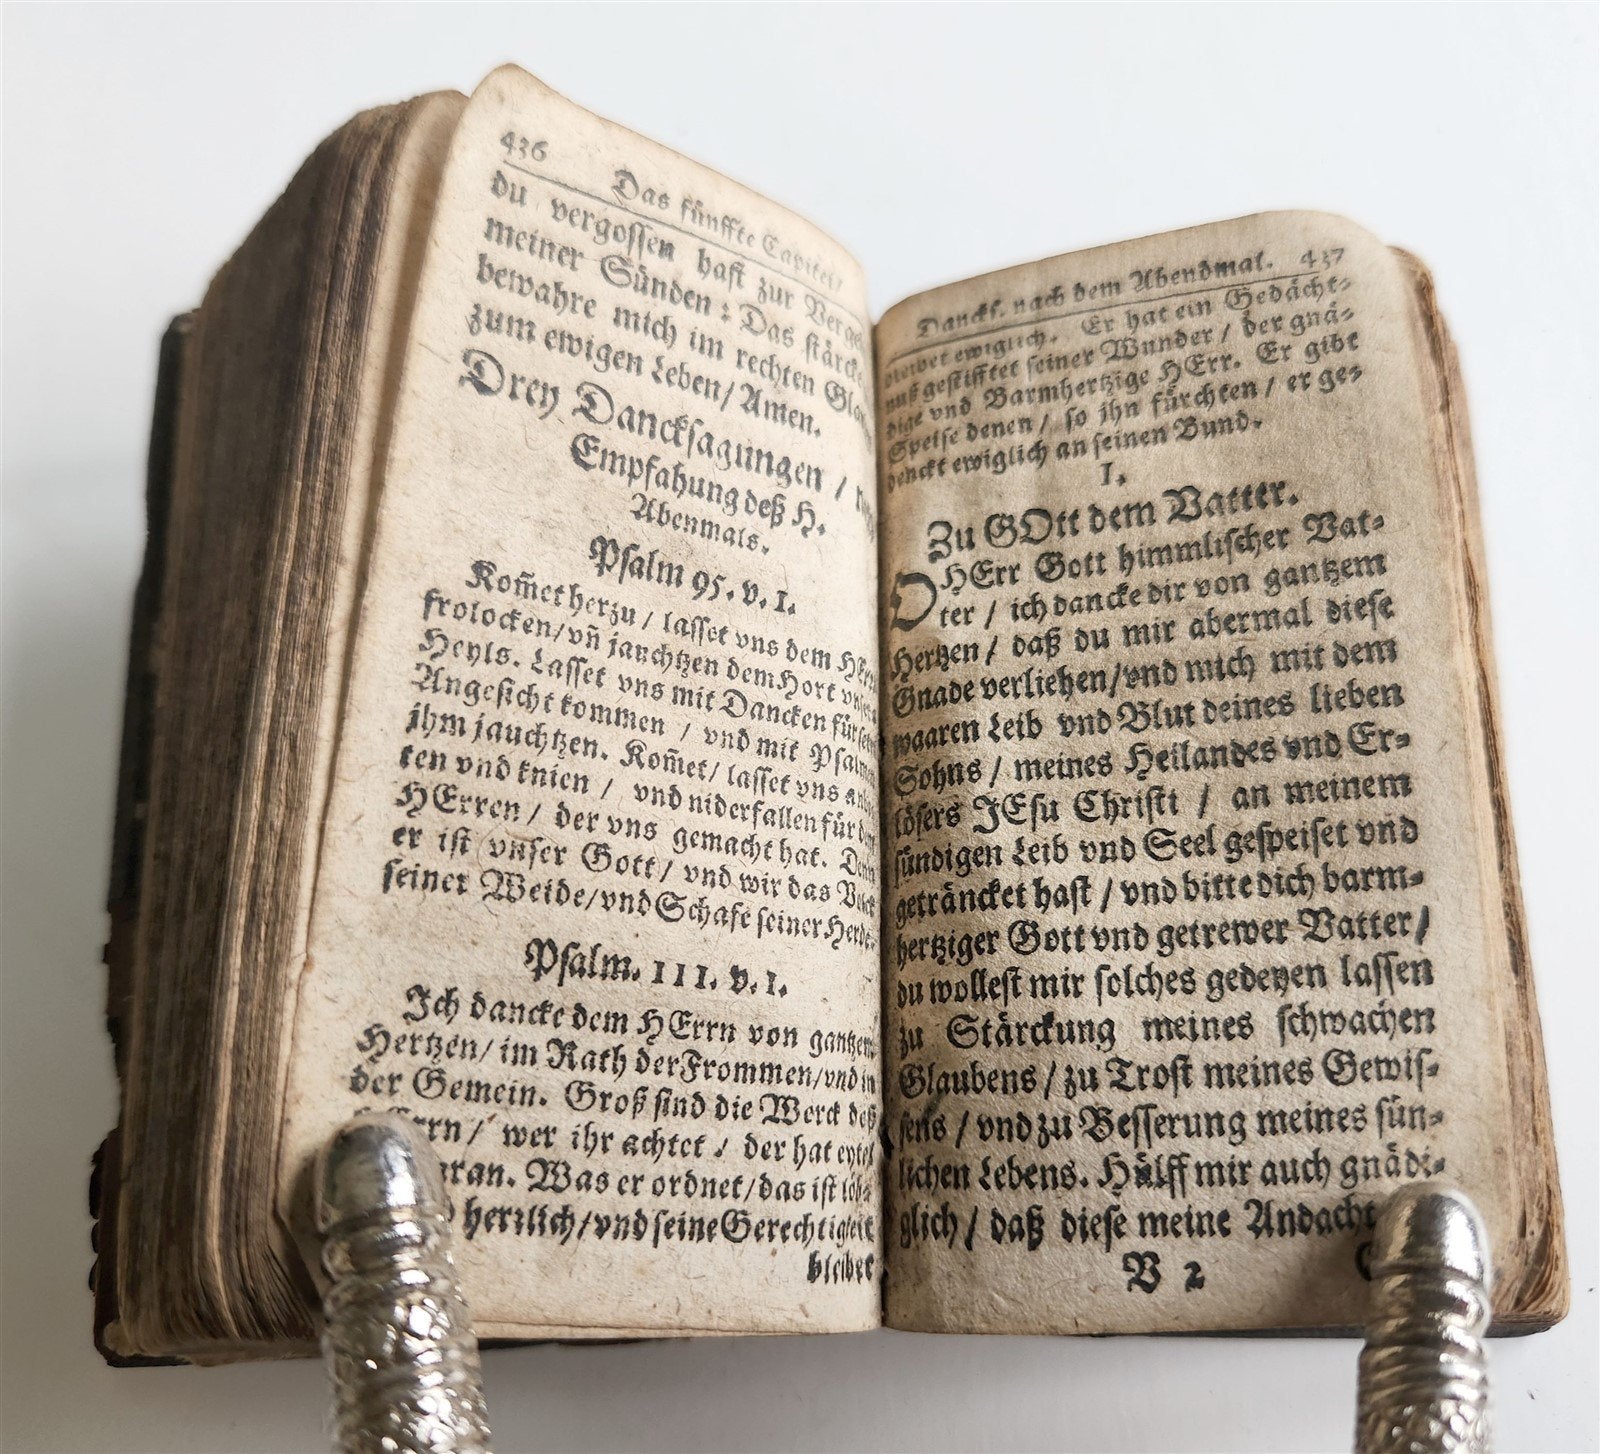 436
Das fünffte Capitel/
du vergossen hast zur Vergeb
meiner Sünden: Das stärcke
bewahre mich im rechten Glau
zum ewigen Leben/ Amen.
Drey Dancksagungen /
Empfahung deß H.
Abenmals.
Psalm 95. v. 1.
Kom̃et herzu / lasset vns dem HErrn
frolocken/ vñ jauchtzen dem Hort vnsers
Heyls. Lasset vns mit Dancken für sein
Angesicht kommen / vnd mit Psalmen
ihm jauchtzen. Kom̃et/ lasset vns anbe
ten vnd knien / vnd niderfallen für dem
HErren / der vns gemacht hat. Denn
er ist vnser Gott/ vnd wir das Volck
seiner Weide/ vnd Schafe seiner Herde.
Psalm. 111. v. 1.
Ich dancke dem HErrn von gantzem
Hertzen/ im Rath der Frommen/ vnd in
der Gemein. Groß sind die Werck deß
rrn/ wer ihr achtet / der hat eytel
aran. Was er ordnet/ das ist löb-
herrlich/ vnd seine Gerechtigkeit
bleibet
Dancks. nach dem Abendmal. 437
bleibet ewiglich. Er hat ein Gedächt-
nuß gestifftet seiner Wunder / der gnä-
dige vnd Barmhertzige HErr. Er gibt
Speise denen / so ihn fürchten / er ge-
denckt ewiglich an seinen Bund.
I.
Zu GOtt dem Vatter.
O HErr Gott himmlischer Vat-
ter / ich dancke dir von gantzem
Hertzen / daß du mir abermal diese
Gnade verliehen/ vnd mich mit dem
waaren Leib vnd Blut deines lieben
Sohns / meines Heilandes vnd Er-
lösers JEsu Christi / an meinem
sündigen Leib vnd Seel gespeiset vnd
geträncket hast / vnd bitte dich barm-
hertziger Gott vnd getrewer Vatter/
du wollest mir solches gedeyen lassen
zu Stärckung meines schwachen
Glaubens / zu Trost meines Gewis-
sens / vnd zu Besserung meines sün-
lichen Lebens. Hülff mir auch gnädi-
glich / daß diese meine Andacht
V 2